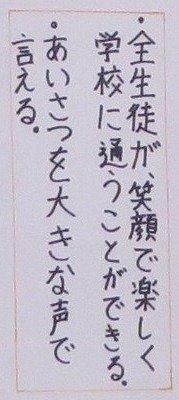 ・全生徒が、笑顔で楽しく
学校に通うことができる。
・あいさつを大きな声で
言える。